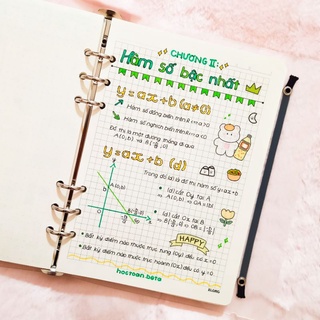 CHƯƠNG II:
Hàm số bậc nhất
y = ax + b (a≠0)
Hàm số đồng biến trên R ⇔ a > 0
Hàm số nghịch biến trên R ⇔ a < 0
Đồ thị là một đường thẳng đi qua
A(0,b) ⇒ B(-b/a,0)
y = ax + b (d)
Trong đó (d) là đồ thị hàm số y = ax + b
(d) cắt Oy tại A:
⇒ A(0,b) ⇒ OA = |b|
(d) cắt Ox tại B:
⇒ B(-b/a,0) ⇒ OB = |-b/a|
A(0,b)
B(-b/a,0)
HAPPY
Bất kỳ điểm nào thuộc trục tung (Oy) đều có x = 0
Bất kỳ điểm nào thuộc trục hoành (Ox) đều có y = 0
hoctoan.beta
KLONG